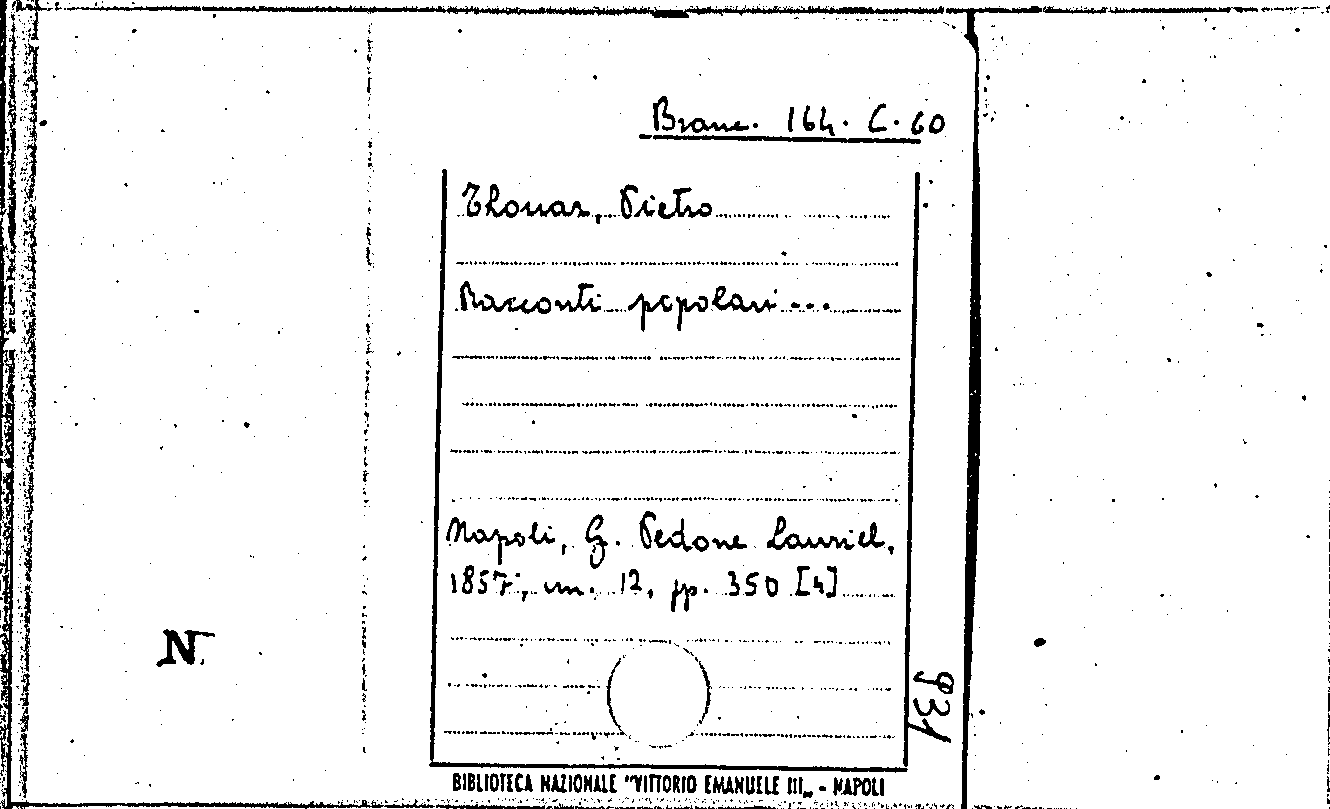 Branc. 164. C. 60
Thouar, Pietro
Racconti popolari...
Napoli, G. Pedone Lauriel,
1857, in. 12, pp. 350 [4]
N
931
BIBLIOTECA NAZIONALE "VITTORIO EMANUELE III„ - NAPOLI